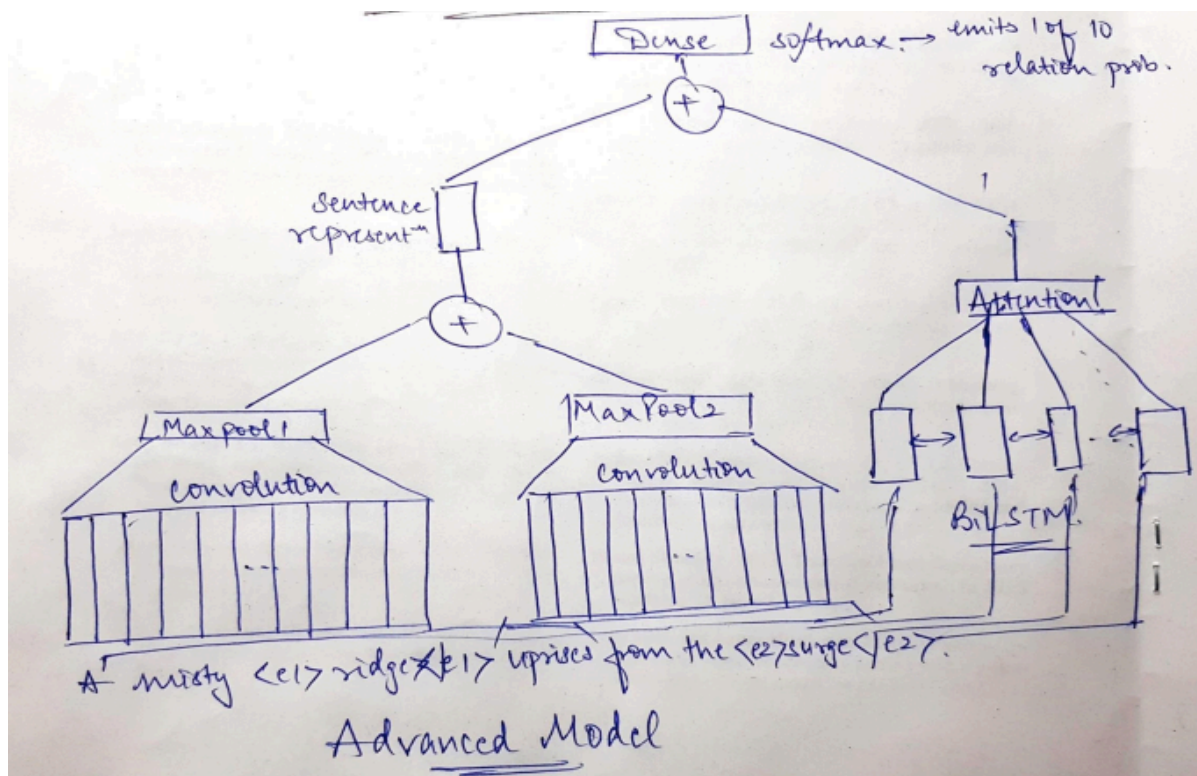 Dense softmax. → emits 1 of 10
relation prob.
+
sentence
representⁿ
+
Attention
Maxpool 1
MaxPool 2
convolution
convolution
...
...
BiLSTM.
A misty <e1> ridge </e1> uprises from the <e2> surge </e2>.
Advanced Model